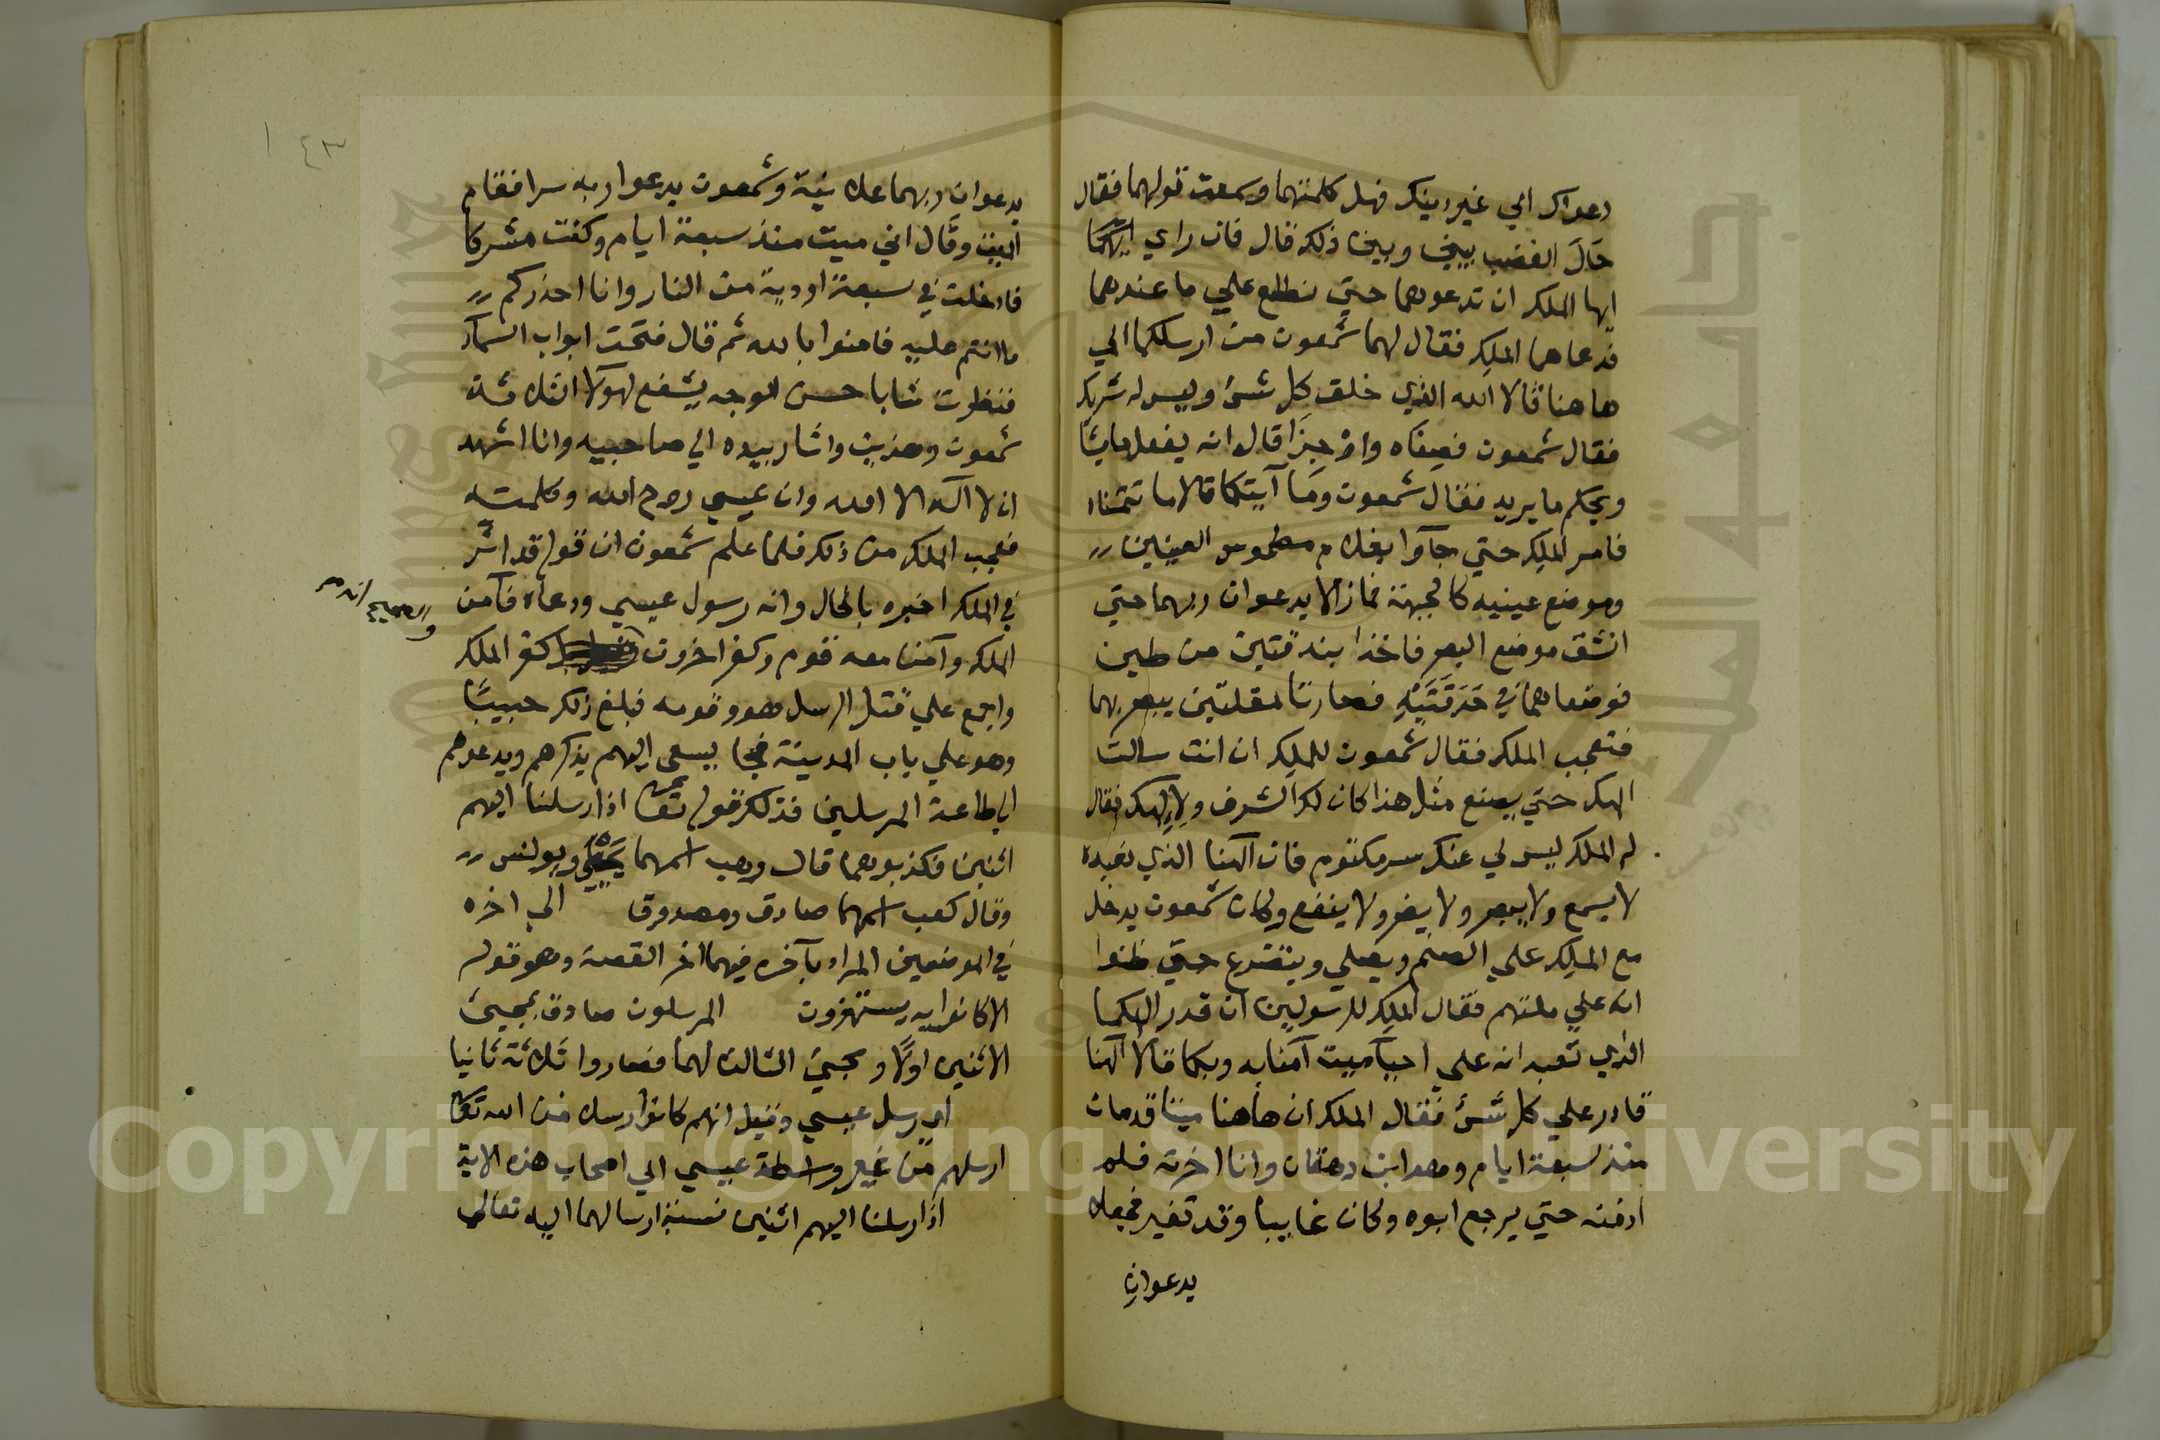 دعواك الي غير دينك فهل كلمتهما وسمعت قولهما فقال
حَالَ الغضب بيني وبين ذلك قال فان راي
ايها الملك ان تدعوهما حتي نطلع علي ما عندهما
فدعاهما الملك فقال لهما شمعون من ارسلكما الي
هاهنا قالا الله الذي خلق كل شئ وليس له شريك
فقال شمعون فصِفَاه واوْجِزَا قالا انه يفعل ما يشا
ويحكم ما يريد فقال شمعون وَمَا آيتكما قالا ما تتمناه
فامر الملك حتي جآوا بغلام مطموس العينين
وموضع عينيه كالجبهة فمازالا يدعوان ربهما حتي
انشق موضع البصر فاخذا بندقتين من طين
فوضعاهما في حَدَقَتَيْهِ فصارتا مقلتين يبصر بهما
فتعجب الملك فقال شمعون للملك ان انت سالت
الهك حتي يصنع مثل هذا كان لك الشرف ولِاِلٰهك فقال
له الملك ليس لي عنك سر مكتوم فان آلهنا الذي نعبده
لا يسمع ولا يبصر ولا يضر ولا ينفع وكان شمعون يدخل
مع الملك علي الصنم ويصلي ويتضرع حتي ظنوا
انه علي ملتهم فقال الملك للرسولين ان قدر الهكما
الذي تعبدانه علي احيآ ميت آمنا به وبكما قالا الهنا
قادر علي كل شئ فقال الملك ان هاهنا ميتا قد مات
منذ سبعة ايام وهو ابن دهقان وانا اخرته فلم
ادفنه حتي يرجع ابوه وكان غايبا وقد تغير فجعلا
يدعوان
١٤٣
يدعوان ربهما علانية وشمعون يدعوا ربه سرا فقام
الميت وقال اني ميت منذ سبعة ايام وكنت مشركا
فادخلت في سبعة اودية من النار وانا احذركم
ما انتم عليه فامنوا بالله ثم قال فتحت ابواب السمآء
فنظرت شابا حسن الوجه يشفع لهولآ الثلاثة
شمعون وهذين واشار بيده الي صاحبيه وانا اشهد
ان لا اله الا الله وان عيسي روح الله وكلمته
فعجب الملك من ذلك فلما علم شمعون ان قوله قد اثر
في الملك اخبره بالحال وانه رسول عيسي ودعاه فآمن
الملك وآمن معه قوم وكفر اخرون كفر الملك
والصحيح انه
واجمع علي قتل الرسل هو وقومه فبلغ ذلك حبيبًا
وهو علي باب المدينة فجا يسعي اليهم يذكرهم ويدعوهم
الي طاعة المرسلين فذلك قوله تعالي اذ ارسلنا اليهم
اثنين فكذبوهما قال وهب اسمهما يحيي ويولس
وقال كعب اسمهما صادق ومصدوق الي اخره
في الموضعين المراد بآخره فيهما اخر القصة وهو قوله
الا كانوا به يستهزون المرسلون صادق بمجيئ
الاثنين اولًا ومجيئ الثالث لهما فصاروا ثلاثة ثانيا
اي رسل عيسي وقيل انهم كانوا رسلا من الله تعالي
ارسلهم من غير واسطة عيسي الي اصحاب هذه الاية
اذ ارسلنا اليهم اثنين نسبة ارسالهما اليه تعالي